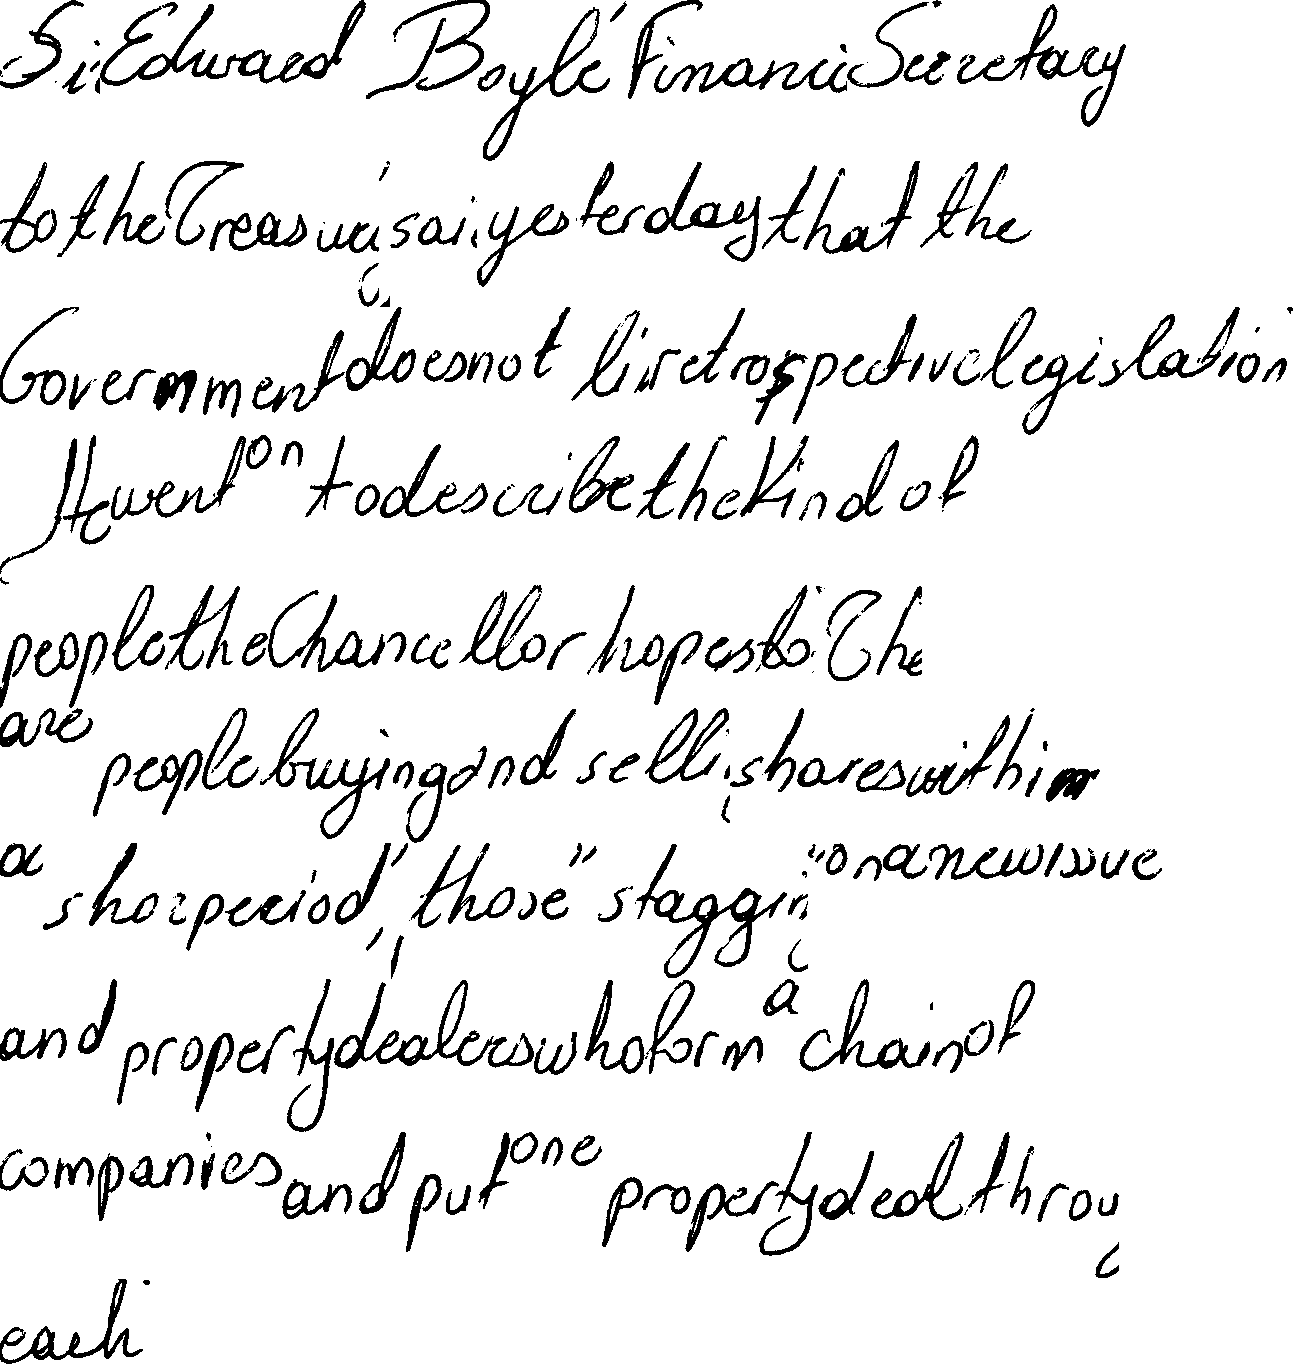 Si Edward Boyle' Financi Secretary
to the Treasu sai yesterday that the
Government does not li retrospective legislation
He went on to describe the kind of
people the Chancellor hopes to The
are people buying and selli shares within
a "shor period", those "staggin" on a new issue
and property dealers who form a chain of
companies and put one property deal throu
each